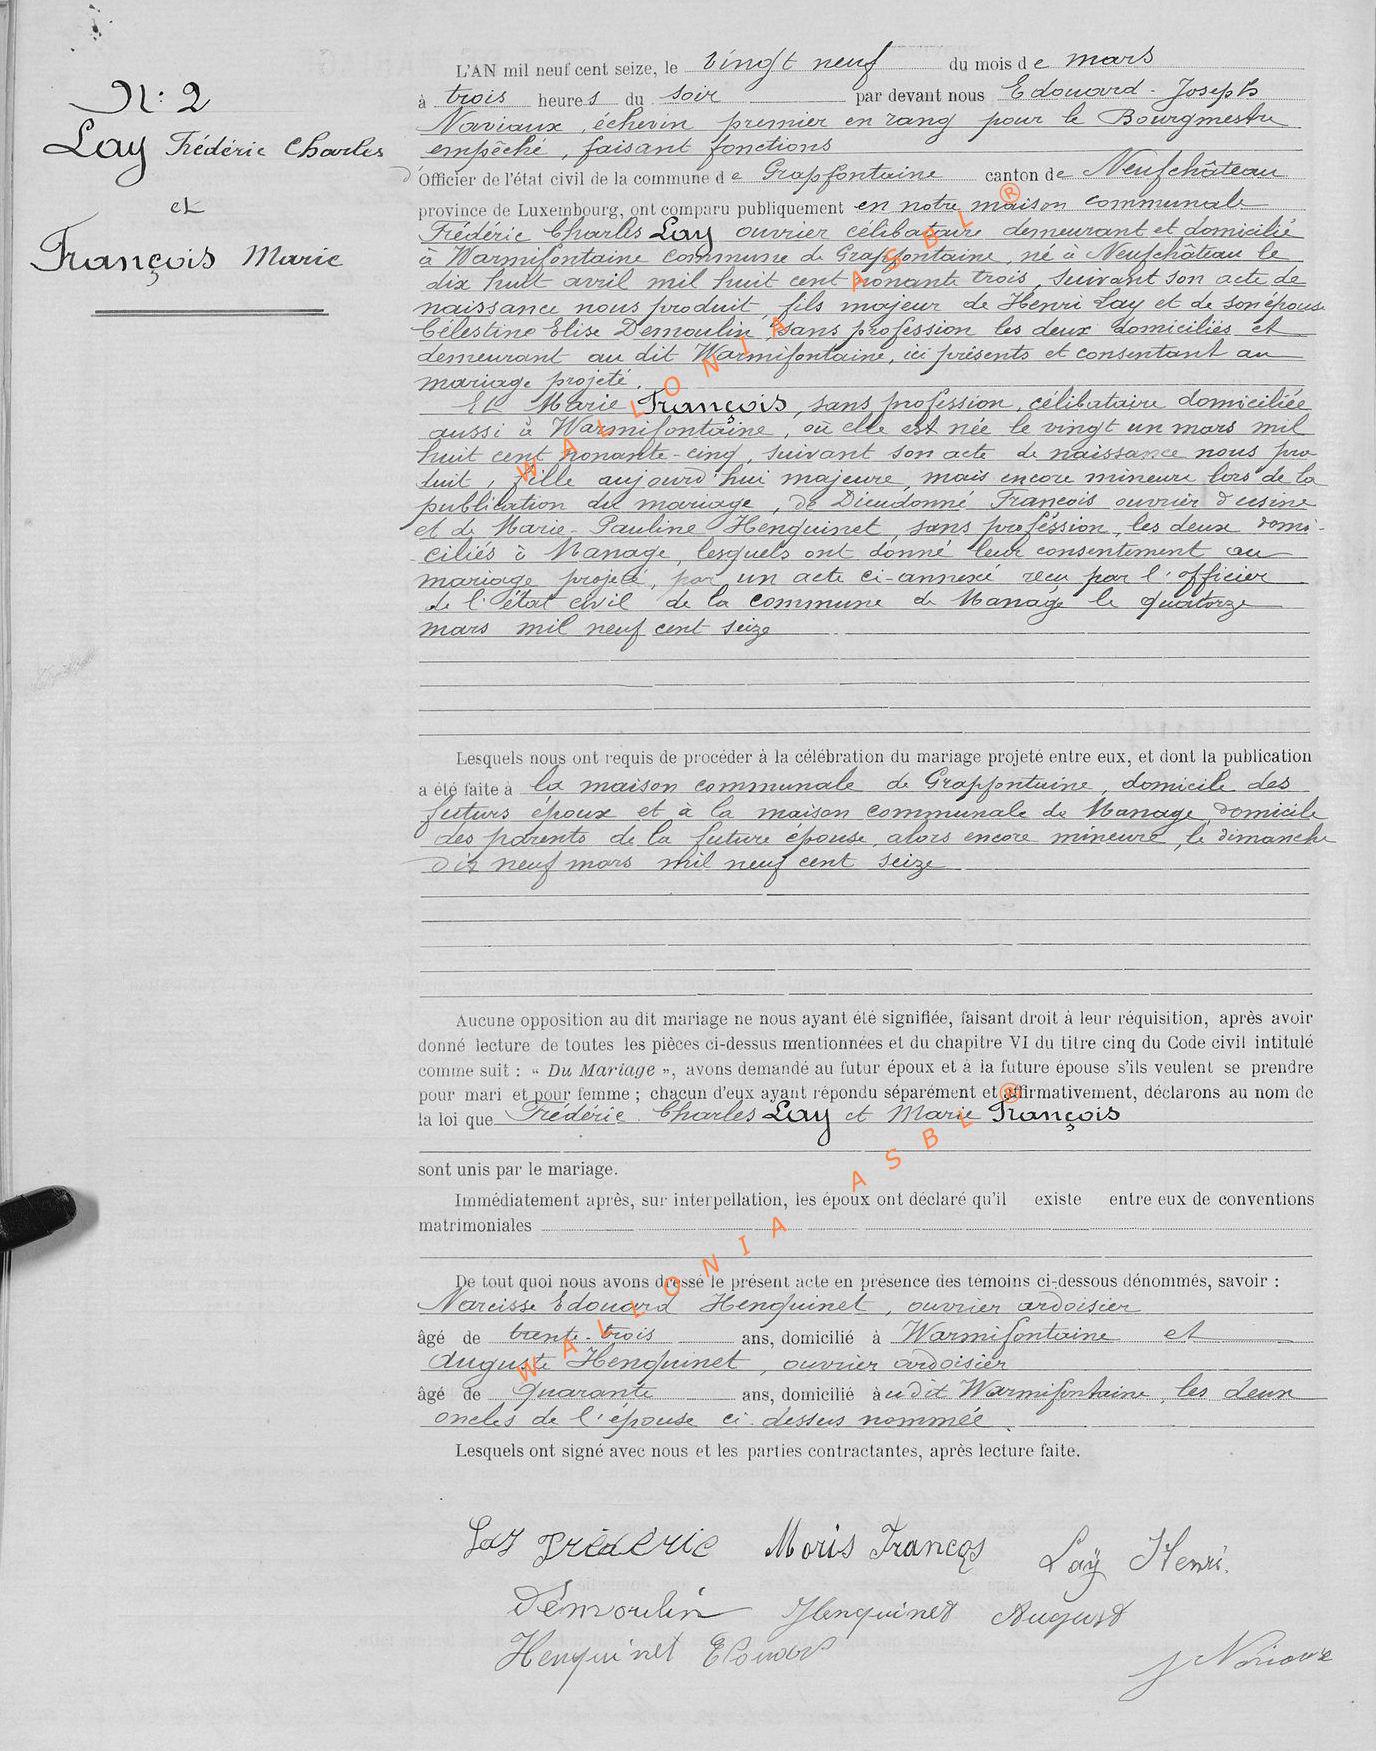 N: 2
Lay Frédéric Charles
et
François Marie
L'AN mil neuf cent seize, le vingt neuf du mois de mars
à trois heures du soir par devant nous Edouard-Joseph
Naviaux, échevin premier en rang pour le Bourgmestre
empêché, faisant fonctions
d'Officier de l'état civil de la commune de Grapfontaine canton de Neufchâteau
province de Luxembourg, ont comparu publiquement en notre maison communale
Frédéric Charles Lay ouvrier célibataire demeurant et domicilié
à Warmifontaine commune de Grapfontaine, né à Neufchâteau le
dix huit avril mil huit cent nonante trois, suivant son acte de
naissance nous produit, fils majeur de Henri Lay et de son épouse
Célestine Elise Demoulin, sans profession les deux domiciliés et
demeurant au dit Warmifontaine, ici présents et consentant au
mariage projeté.
Et Marie François, sans profession, célibataire domiciliée
aussi à Warmifontaine, où elle est née le vingt un mars mil
huit cent nonante-cinq, suivant son acte de naissance nous pro
duit, fille aujourd'hui majeure, mais encore mineure lors de la
publication du mariage, de Dieudonné François ouvrier d'usine
et de Marie-Pauline Henquinet, sans profession, les deux domi-
ciliés à Manage, lesquels ont donné leur consentement au
mariage projeté, par un acte ci-annexé reçu par l'officier
de l'état civil de la commune de Manage le quatorze
mars mil neuf cent seize
Lesquels nous ont requis de procéder à la célébration du mariage projeté entre eux, et dont la publication
a été faite à la maison communale de Grapfontaine, domicile des
futurs époux et à la maison communale de Manage, domicile
des parents de la future épouse, alors encore mineure, le dimanche
dix neuf mars mil neuf cent seize
Aucune opposition au dit mariage ne nous ayant été signifiée, faisant droit à leur réquisition, après avoir
donné lecture de toutes les pièces ci-dessus mentionnées et du chapitre VI du titre cinq du Code civil intitulé
comme suit : « Du Mariage », avons demandé au futur époux et à la future épouse s'ils veulent se prendre
pour mari et pour femme ; chacun d'eux ayant répondu séparément et affirmativement, déclarons au nom de
la loi que Frédéric Charles Lay et Marie François
sont unis par le mariage.
Immédiatement après, sur interpellation, les époux ont déclaré qu'il existe entre eux de conventions
matrimoniales
De tout quoi nous avons dressé le présent acte en présence des témoins ci-dessous dénommés, savoir :
Narcisse Edouard Henquinet, ouvrier ardoisier
âgé de trente-trois ans, domicilié à Warmifontaine et
Auguste Henquinet, ouvrier ardoisier
âgé de quarante ans, domicilié au dit Warmifontaine, les deux
oncles de l'épouse ci dessus nommée.
Lesquels ont signé avec nous et les parties contractantes, après lecture faite.
Lay Frédéric Maris François Laÿ Henri.
Démoulin Henquinet August
Henquinet Edouard
WALLONIA ASBL ®
WALLONIA ASBL ®